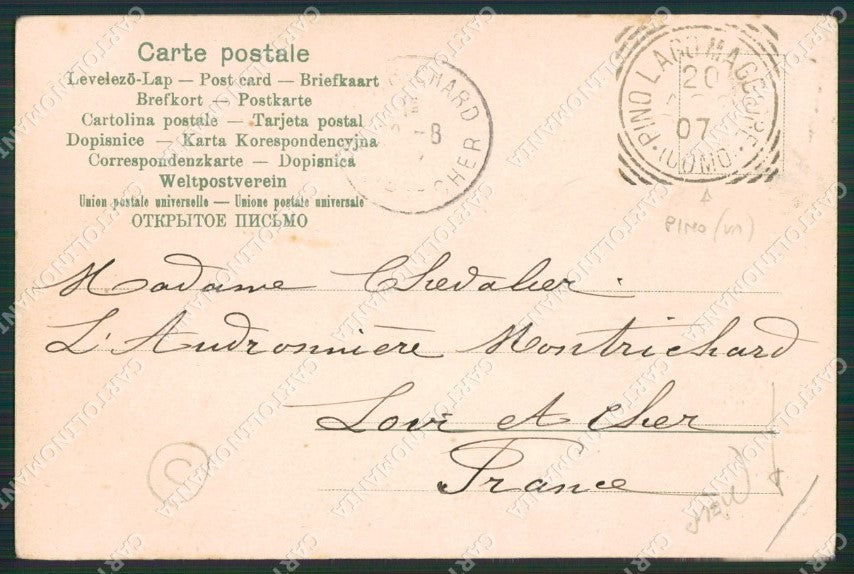 Carte postale
Levelezö-Lap — Post card — Briefkaart
Brefkort — Postkarte
Cartolina postale — Tarjeta postal
Dopisnice — Karta Korespondencyjna
Correspondenzkarte — Dopisnica
Weltpostverein
Union postale universelle — Unione postale universale
ОТКРЫТОЕ ПИСЬМО
CHARD
-8
CHER
PINO LAGO MAGGIORE
20
07
(COMO)
PINO (VA)
Madame Chevalier.
L'Andronnière Montrichard
Loir et Cher
France
C
CARTOLINOMANIA